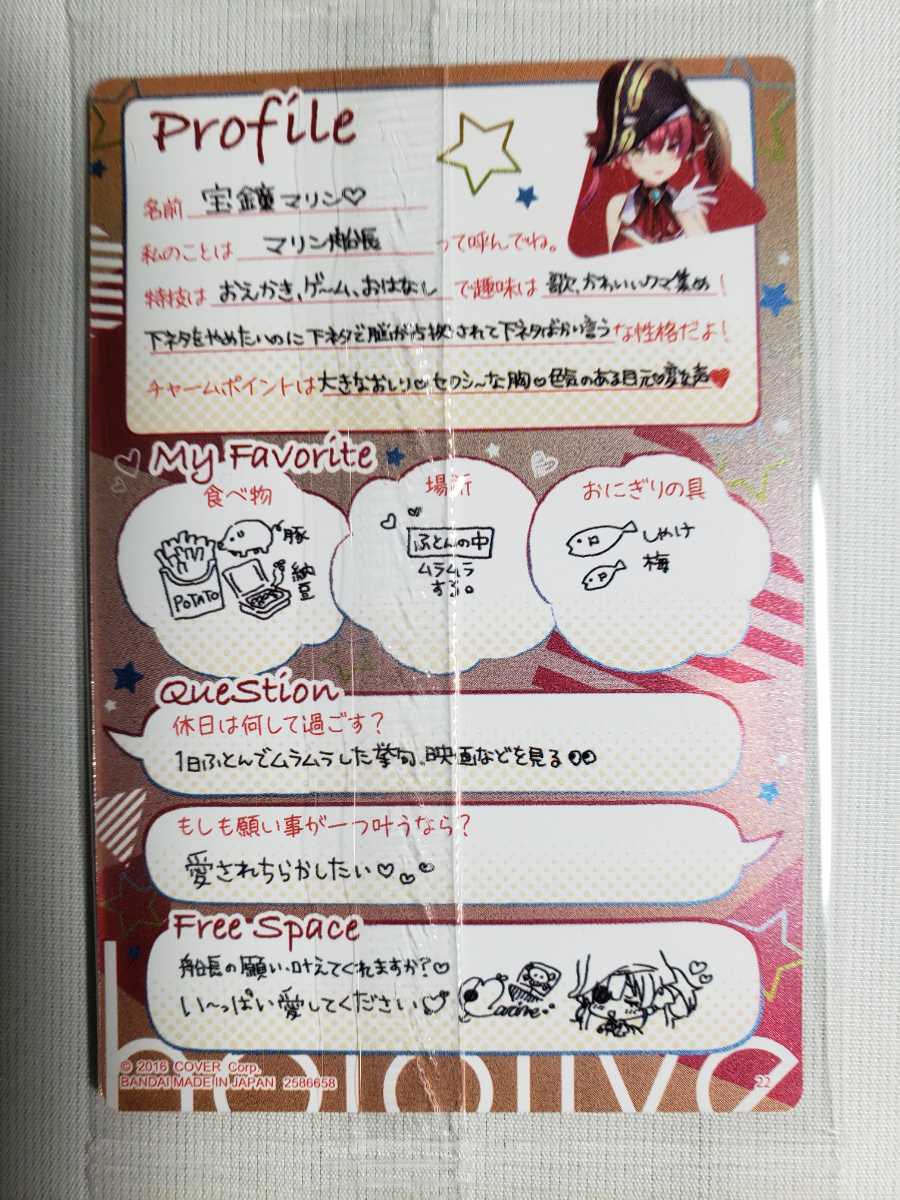 Profile
名前 宝鐘マリン♡
私のことは マリン船長 って呼んでね。
特技は おえかき、ゲーム、おはなし で趣味は 歌、かわいいクマ集め！
下ネタをやめたいのに下ネタで脳が占拠されて下ネタばかり言う な性格だよ！
チャームポイントは 大きなおしり♡セクシーな胸♡色気のある目元♡変な声♥
My Favorite
食べ物
豚
納豆
POTATO
場所
ふとんの中
ムラムラ
する。
おにぎりの具
しゃけ
梅
QueStion
休日は何して過ごす？
1日ふとんでムラムラした挙句、映画などを見る
もしも願い事が一つ叶うなら？
愛されちらかしたい♡
Free Space
船長の願い、叶えてくれますか？♡
い〜っぱい愛してください♡
Marine
hololive
© 2016 COVER Corp.
BANDAI MADE IN JAPAN 2586658
22